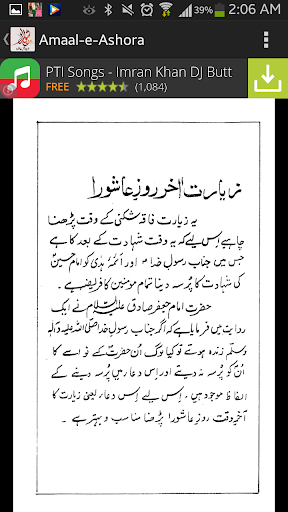 2:06 AM
Amaal-e-Ashora
PTI Songs - Imran Khan DJ Butt
FREE (1,084)
زیارت آخر روزِ عاشورا
یہ زیارت فاقہ شکنی کے وقت پڑھنا
چاہیے اِس لیے کہ یہ وقت شہادت کے بعد کا ہے
جس میں جناب رسولِ خداؐ اور آئمہ ہدٰی کو امام حسینؑ
کی شہادت کا پُرسہ دینا تمام مومنین کا فریضہ ہے۔
حضرت امام جعفر صادق علیہ السلام نے ایک
روایت میں فرمایا ہے کہ اگر جناب رسولِ خدا صلی اللہ علیہ وآلہ
وسلم زندہ ہوتے تو کیا لوگ اُن حضرت کے نواسے کا
اُن کو پُرسہ نہ دیتے اور اِس دعا میں پُرسہ دینے کے
الفاظ موجود ہیں، اِس لیے اِس دعاء یعنی زیارت کا
آخر وقت روزِ عاشورا پڑھنا مناسب و بہتر ہے۔